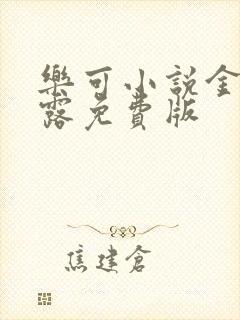 樂可小説金
露免費版
焦建倉